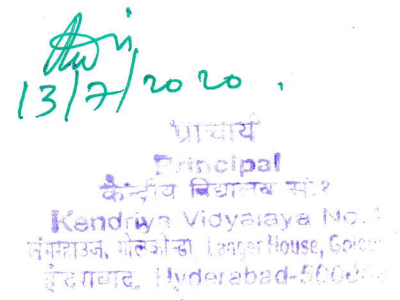 13/7/2020.
प्राचार्य
Principal
केन्द्रीय विद्यालय सं.
Kendriya Vidyalaya No. 1
लंगरहाउज, गोलकोन्डा, Langar House,
हैदराबाद, Hyderabad-